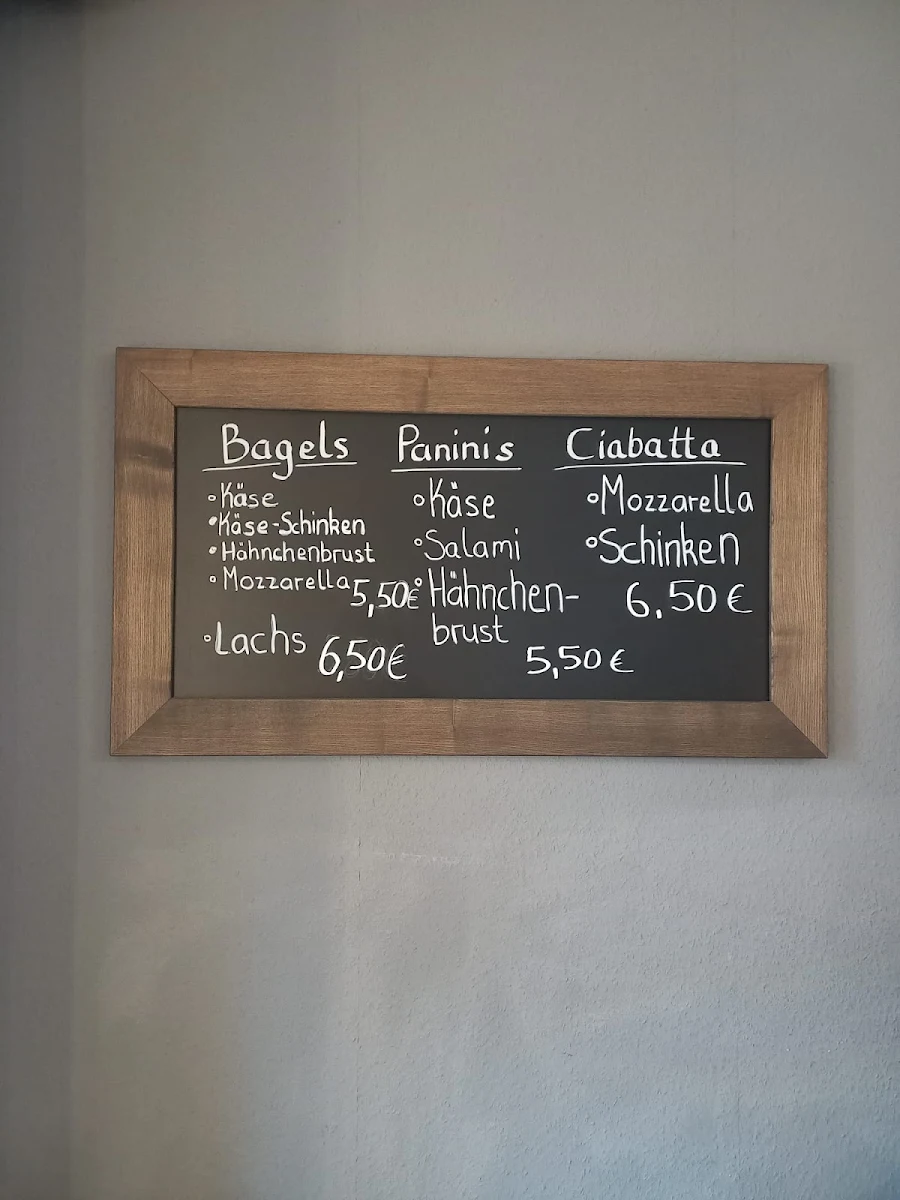 Bagels
° Käse
° Käse-Schinken
° Hähnchenbrust
° Mozzarella 5,50€
° Lachs 6,50€
Paninis
° Käse
° Salami
° Hähnchen-
brust
5,50€
Ciabatta
° Mozzarella
° Schinken
6,50€